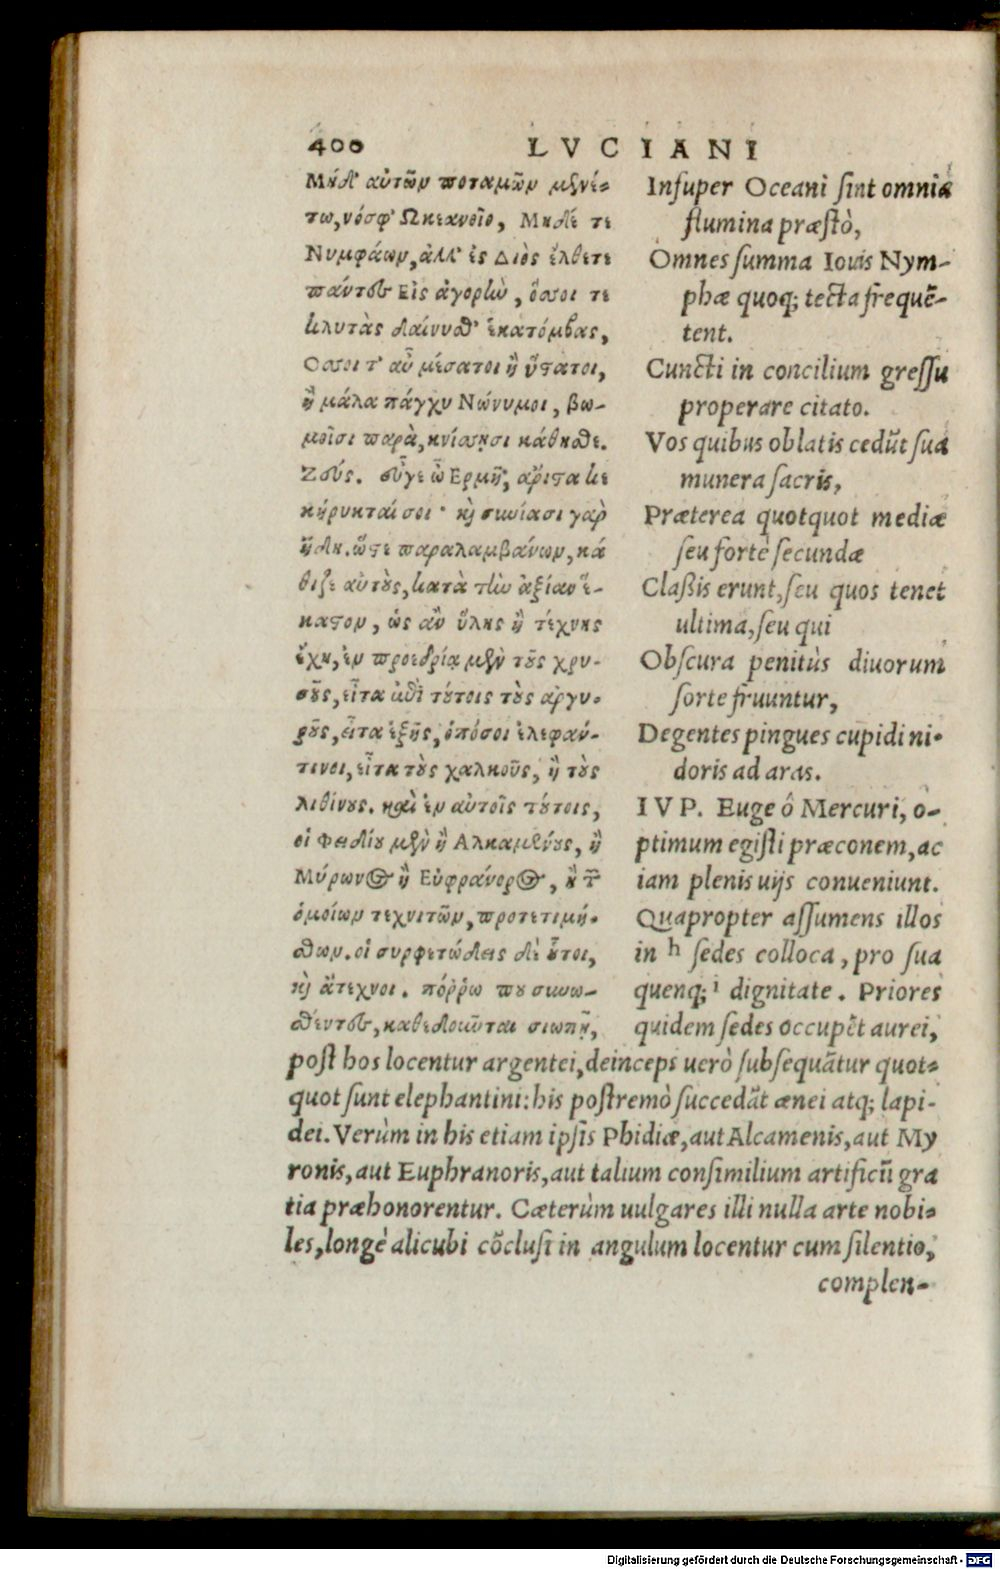 400 LVCIANI
Μήδ' αὐτῶν ποταμῶν μενέ-
τω, νόσφ' Ωκεανοῖο, Μηδέ τε
Νυμφάων, ἀλλ' ἐς Διὸς ἔλθετε
πάντες Εἰς ἀγορὴν, ὅσοι τε
κλυτὰς δαίνυσθ' ἑκατόμβας,
Οσοι τ' αὖ μέσατοι ἢ ὕστατοι,
ἢ μάλα πάγχυ Νώνυμοι, βω-
μοῖσι παρὰ, κνίσῃσι κάθησθε.
Ζεύς. εὖγε ὦ Ερμῆ, ἄριστα κε
κήρυκταί σοι· καὶ συνίασι γὰρ
ἤδη. ὥστε παραλαμβάνων, κά
θιζε αὐτοὺς, κατὰ τὴν ἀξίαν ἕ-
καστον, ὡς ἂν ὕλης ἢ τέχνης
ἔχῃ, ἐν προεδρίᾳ μὲν τοὺς χρυ-
σοῦς, εἶτα ἐπὶ τούτοις τοὺς ἀργυ-
ροῦς, εἶτα ἑξῆς, ὁπόσοι ἐλεφάν-
τινοι, εἶτα τοὺς χαλκοῦς, ἢ τοὺς
λιθίνους. καὶ ἐν αὐτοῖς τούτοις,
οἱ Φειδίου μὲν ἢ Αλκαμένους, ἢ
Μύρωνος ἢ Εὐφράνορος, ἢ τῶν
ὁμοίων τεχνιτῶν, προτετιμή-
σθων. οἱ συρφετώδεις δὲ οὗτοι,
καὶ ἄτεχνοι. πόῤῥω που συνω-
σθέντες, καθεδοῦνται σιωπῇ,
Insuper Oceani sint omnia
flumina præstò,
Omnes summa Iouis Nym-
phæ quoq; tecta frequẽ-
tent.
Cuncti in concilium gressu
properare citato.
Vos quibus oblatis cedũt sua
munera sacris,
Præterea quotquot mediæ
seu fortè secundæ
Claßis erunt, seu quos tenet
ultima, seu qui
Obscura penitùs diuorum
sorte fruuntur,
Degentes pingues cupidi ni-
doris ad aras.
IVP. Euge ô Mercuri, o-
ptimum egisti præconem, ac
iam plenis uijs conueniunt.
Quapropter assumens illos
in h sedes colloca, pro sua
quenq; i dignitate. Priores
quidem sedes occupẽt aurei,
post hos locentur argentei, deinceps uerò subsequãtur quot-
quot sunt elephantini: his postremò succedãt ænei atq; lapi-
dei. Verùm in his etiam ipsis Phidiæ, aut Alcamenis, aut My
ronis, aut Euphranoris, aut talium consimilium artificũ gra
tia præhonorentur. Cæterùm uulgares illi nulla arte nobi-
les, longè alicubi cõclusi in angulum locentur cum silentio,
complen-
Digitalisierung gefördert durch die Deutsche Forschungsgemeinschaft - DFG